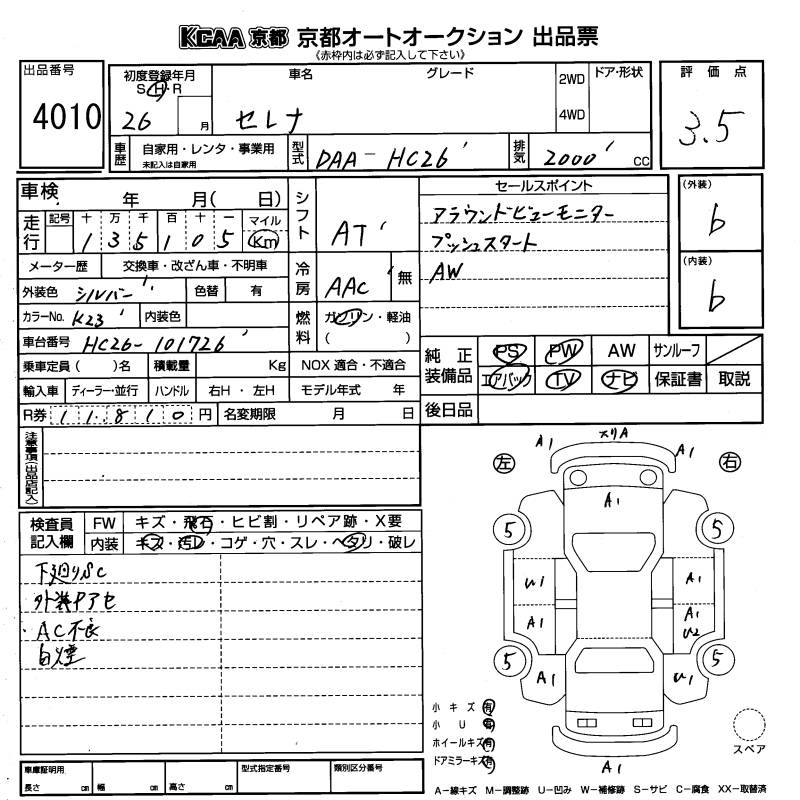 KCAA 京都 京都オートオークション 出品票
《赤枠内は必ず記入して下さい》
出品番号
4010
初度登録年月
S・H・R
26 月
車名
グレード
セレナ
2WD
4WD
ドア・形状
評価点
3.5
車歴
自家用・レンタ・事業用
未記入は自家用
型式
DAA-HC26
排気
2000 cc
車検 年 月( 日)
走行
記号 十 万 千 百 十 一 マイル
1 3 5 1 0 5 Km
メーター歴 交換車・改ざん車・不明車
外装色 シルバー 色替 有
カラーNo. K23 内装色
車台番号 HC26-101726
乗車定員( )名 積載量 Kg
輸入車 ディーラー・並行 ハンドル 右H・左H
R券 11810円 名変期限 月 日
シフト
AT
冷房
AAC 無
燃料
ガソリン・軽油
( )
NOX 適合・不適合
モデル年式 年
セールスポイント
アラウンドビューモニター
プッシュスタート
AW
(外装)
b
(内装)
b
純正装備品
PS PW AW サンルーフ
エアバック TV ナビ 保証書 取説
後日品
注意事項(出品店記入)
検査員記入欄
FW キズ・飛石・ヒビ割・リペア跡・X要
内装 キズ・汚レ・コゲ・穴・スレ・ヘタリ・破レ
下廻りSC
外装Pアセ
AC不良
白煙
左
右
A1 スリA A1
A1
5 5
U1 A1
A1 A1 U2
5 5
A1 U1
A1
小キズ 有
小U 有
ホイールキズ 有
ドアミラーキズ 有
スペア
車庫証明用
長さ cm 幅 cm 高さ cm
型式指定番号
類別区分番号
A−線キズ M−調整跡 U−凹み W−補修跡 S−サビ C−腐食 XX−取替済